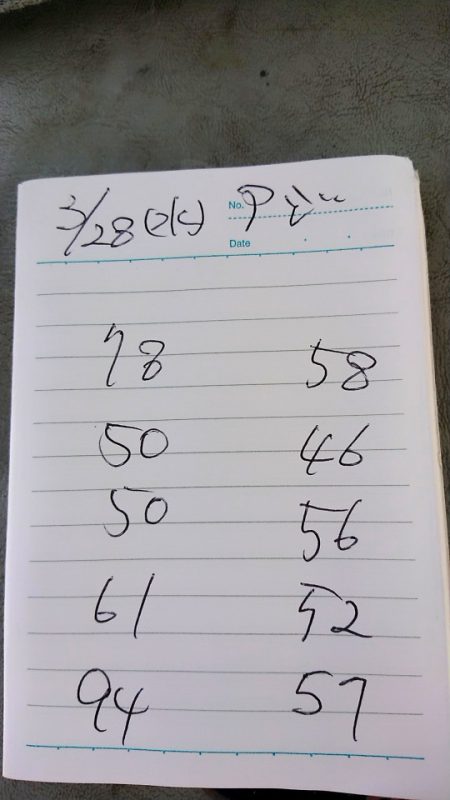 3/28 (水) No.
Date
78 58
50 46
50 56
61 52
94 57